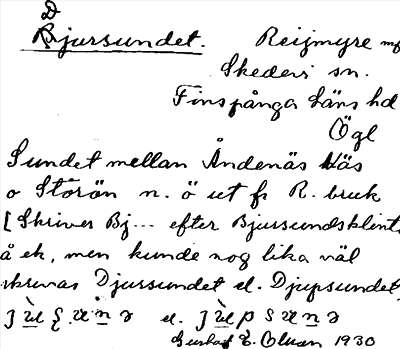 D
Bjursundet. Reijmyre mf
Skedevi sn.
Finspånga läns hd
Ögl
Sundet mellan Åndenäs Näs
o Storön n. ö ut fr R. bruk
[Skriver Bj... efter Bjursundsklint
å ek, men kunde nog lika väl
skrivas Djursundet el. Djupsundet,
el.
Gustaf E. Olsson 1930